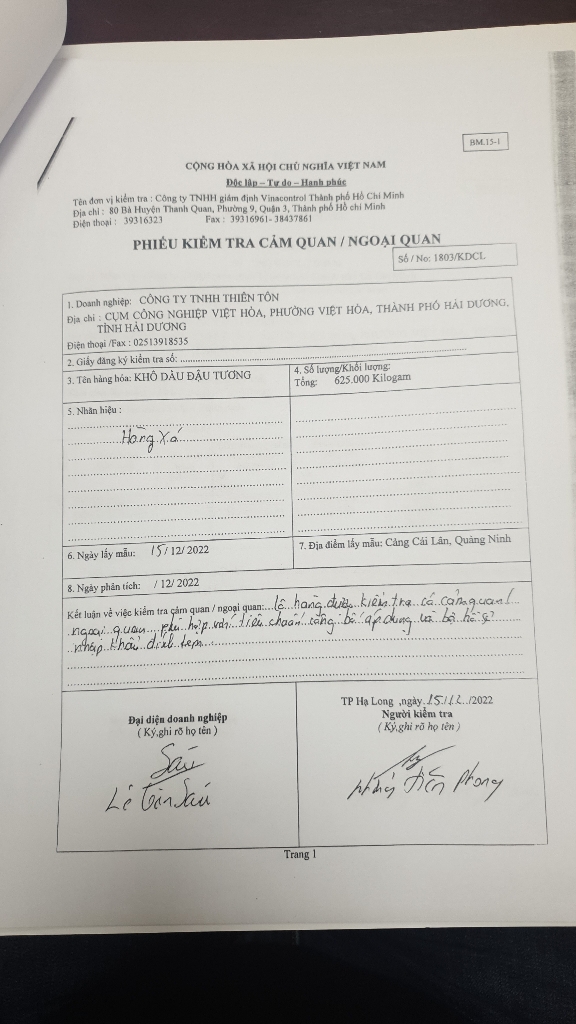 BM.15-1
CỘNG HÒA XÃ HỘI CHỦ NGHĨA VIỆT NAM
Độc lập – Tự do – Hạnh phúc
Tên đơn vị kiểm tra : Công ty TNHH giám định Vinacontrol Thành phố Hồ Chí Minh
Địa chỉ : 80 Bà Huyện Thanh Quan, Phường 9, Quận 3, Thành phố Hồ chí Minh
Điện thoại : 39316323 Fax : 39316961- 38437861
PHIẾU KIỂM TRA CẢM QUAN / NGOẠI QUAN
Số / No: 1803/KDCL
1. Doanh nghiệp: CÔNG TY TNHH THIÊN TÔN
Địa chỉ : CỤM CÔNG NGHIỆP VIỆT HÒA, PHƯỜNG VIỆT HÒA, THÀNH PHỐ HẢI DƯƠNG,
TỈNH HẢI DƯƠNG
Điện thoại /Fax : 02513918535
2. Giấy đăng ký kiểm tra số:
3. Tên hàng hóa: KHÔ DẦU ĐẬU TƯƠNG
4. Số lượng/Khối lượng:
Tổng: 625.000 Kilogam
5. Nhãn hiệu :
Hàng xá
6. Ngày lấy mẫu: 15/ 12/ 2022
7. Địa điểm lấy mẫu: Cảng Cái Lân, Quảng Ninh
8. Ngày phân tích: / 12/ 2022
Kết luận về việc kiểm tra cảm quan / ngoại quan: lô hàng được kiểm tra có cảm quan/
ngoại quan phù hợp với tiêu chuẩn công bố áp dụng và bộ hồ sơ
nhập khẩu đính kèm
Đại diện doanh nghiệp
( Ký,ghi rõ họ tên )
Lê Văn Sáu
TP Hạ Long ,ngày 15/12/2022
Người kiểm tra
( Ký,ghi rõ họ tên )
Tiến Phong
Trang 1